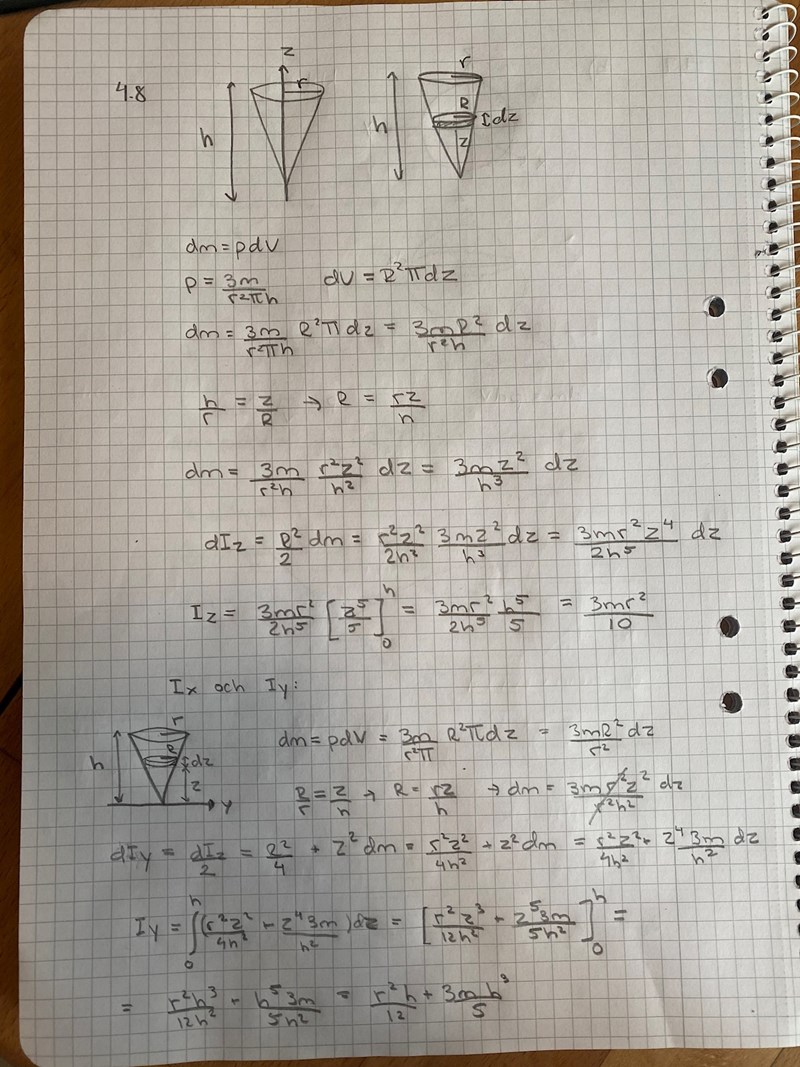 4.8
z
r
h
r
R
I dz
h
z
dm = ρdV
ρ = 3m/r²πh dV = R²πdz
dm = 3m/r²πh R²πdz = 3mR²/r²h dz
h/r = z/R → R = rz/h
dm = 3m/r²h r²z²/h² dz = 3mz²/h³ dz
dIz = R²/2 dm = r²z²/2h² 3mz²/h³ dz = 3mr²z⁴/2h⁵ dz
Iz = 3mr²/2h⁵ [z⁵/5]₀ʰ = 3mr²/2h⁵ h⁵/5 = 3mr²/10
Ix och Iy:
r
R
h
dz
z
y
dm = ρdV = 3m/r²π R²πdz = 3mR²/r² dz
R/r = z/h → R = rz/h → dm = 3mr²z²/r²h² dz
dIy = dIz/2 = R²/4 + z²dm = r²z²/4h² + z²dm = r²z²/4h² + z⁴3m/h² dz
Iy = ∫₀ʰ (r²z²/4h² + z⁴3m/h²)dz = [r²z³/12h² + z⁵3m/5h²]₀ʰ =
= r²h³/12h² + h⁵3m/5h² = r²h/12 + 3mh³/5